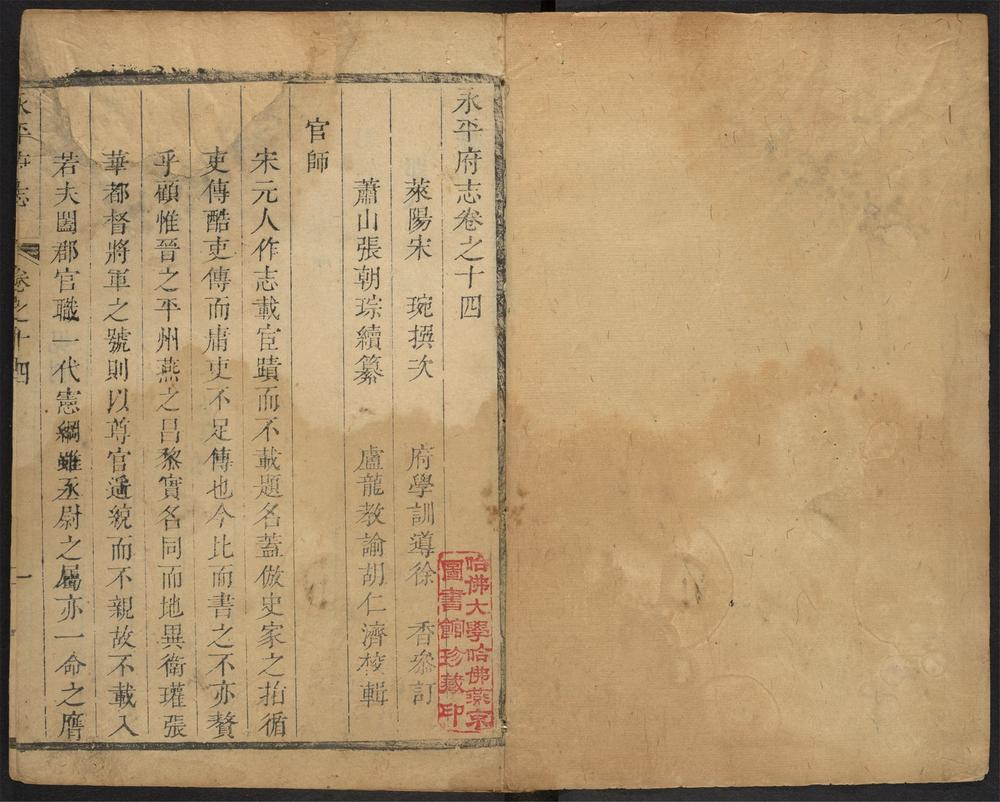 永平府志卷之十四
萊陽宋　琬撰次　府學訓導徐　香叅訂
蕭山張朝琮續纂　盧龍教諭胡仁濟校輯
官師
宋元人作志載宦蹟而不載題名蓋倣史家之拍循
吏傳酷吏傳而庸吏不足傳也今比而書之不亦贅
乎顧惟晉之平州燕之昌黎實名同而地異衛瓘張
華都督將軍之號則以尊官遥統而不親故不載入
若夫闔郡官職一代憲綱雖丞尉之屬亦一命之膺
永平府志
卷之十四
一
哈佛大學哈佛燕京
圖書館珍藏印